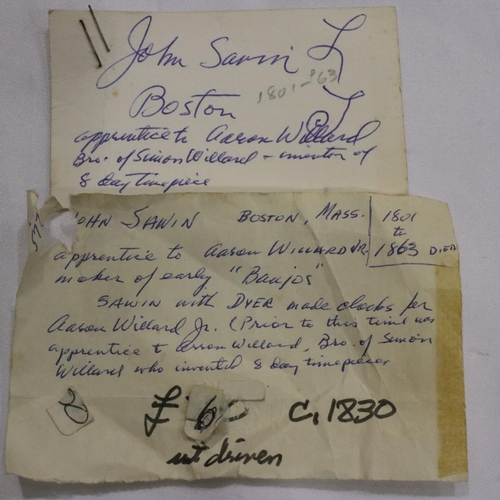 John Sawin
Boston 1801-'63
apprentice to Aaron Willard
Bro. of Simon Willard - inventor of
8 day timepiece
JOHN SAWIN BOSTON, MASS. 1801
to
1863 DIED
apprentice to Aaron WILLARD JR.
maker of early "Banjos"
SAWIN with DYER made clocks for
Aaron Willard Jr. (Prior to this time was
apprentice to Arron Willard, Bro. of Simon
Willard who invented 8 day timepieces
c, 1830
wt driven